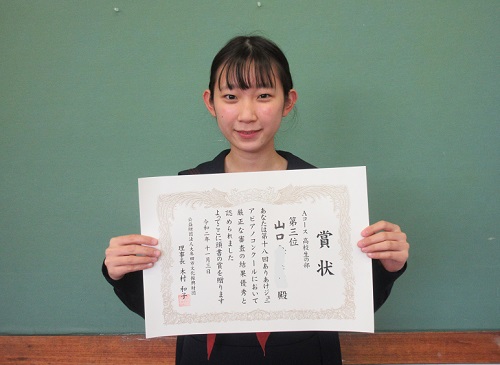 賞状
Aコース 高校生の部
第三位
山口 殿
あなたは第十八回ありあけジュニ
アピアノコンクールにおいて
厳正な審査の結果優秀と
認められました
よってここに頭書の賞を贈ります
令和二年十一月三日
公益財団法人大牟田市文化振興財団
理事長 木村 和子